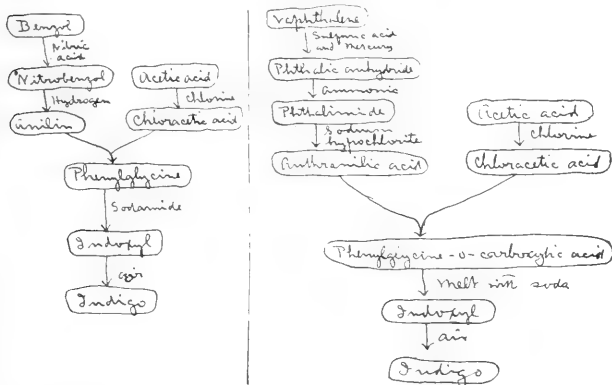 Benzol
Nitric
acid
Nitrobenzol
Hydrogen
Anilin
Acetic acid
Chlorine
Chloracetic acid
Phenylglycine
Sodamide
Indoxyl
air
Indigo
Naphthalene
Sulfuric acid
and Mercury
Phthalic anhydride
Ammonia
Phthalimide
Sodium
hypochlorite
Anthranilic acid
Acetic acid
Chlorine
Chloracetic acid
Phenylglycine-o-carboxylic acid
Melt with soda
Indoxyl
air
Indigo